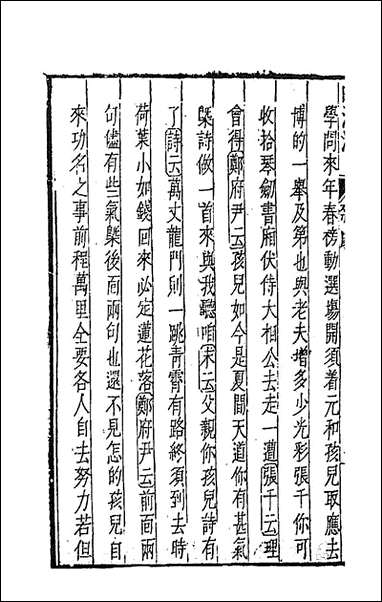 學問來年春榜動選場開須着元和孩兒取應去
博的一舉及第也與老夫增多少光彩張千你可
收拾琴劒書廂伏侍大相公去走一遭張千云理
會得鄭府尹云孩兒如今是夏間天道你有甚氣
槩詩做一首來與我聽咱末云父親你孩兒詩有
了詩云萬丈龍門則一跳青霄有路終須到去時
荷葉小如錢回來必定蓮花落鄭府尹云前面兩
句儘有些氣槩後面兩句也還不見怎的孩兒自
來功名之事前程萬里全要各人自去努力若但